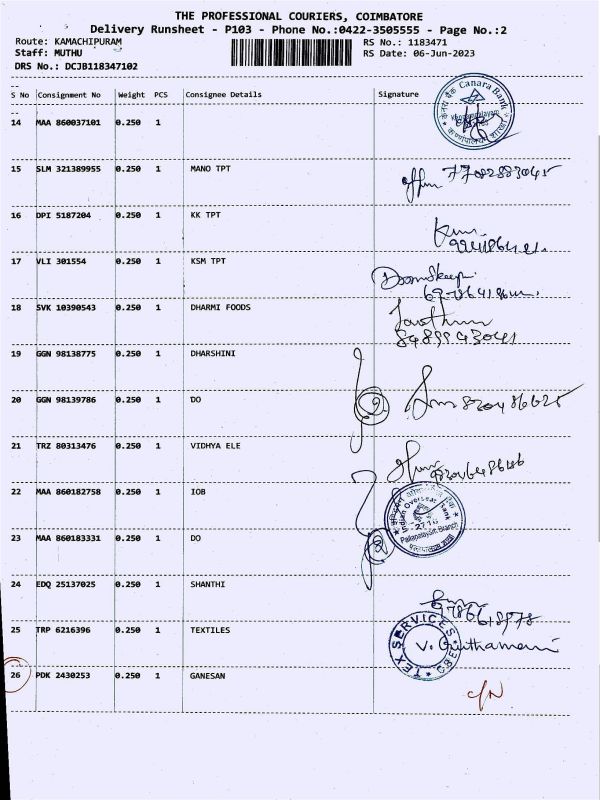 THE PROFESSIONAL COURIERS, COIMBATORE
Delivery Runsheet - P103 - Phone No.:0422-3505555 - Page No.:2
Route: KAMACHIPURAM RS No.: 1183471
Staff: MUTHU RS Date: 06-Jun-2023
DRS No.: DCJB118347102
S No Consignment No Weight PCS Consignee Details Signature
केनरा बैंक Canara Bank
14 MAA 860037101 0.250 1
15 SLM 321389955 0.250 1 MANO TPT
77082883045
16 DPI 5187204 0.250 1 KK TPT
17 VLI 301554 0.250 1 KSM TPT
18 SVK 10390543 0.250 1 DHARMI FOODS
8489943041
19 GGN 98138775 0.250 1 DHARSHINI
20 GGN 98139786 0.250 1 DO
2
21 TRZ 80313476 0.250 1 VIDHYA ELE
22 MAA 860182758 0.250 1 IOB
Indian Overseas Bank
2716
Pallapalayam Branch
23 MAA 860183331 0.250 1 DO
2
24 EDQ 25137025 0.250 1 SHANTHI
9786618978
25 TRP 6216396 0.250 1 TEXTILES
TEX SERVICES
CBE
26 PDK 2430253 0.250 1 GANESAN